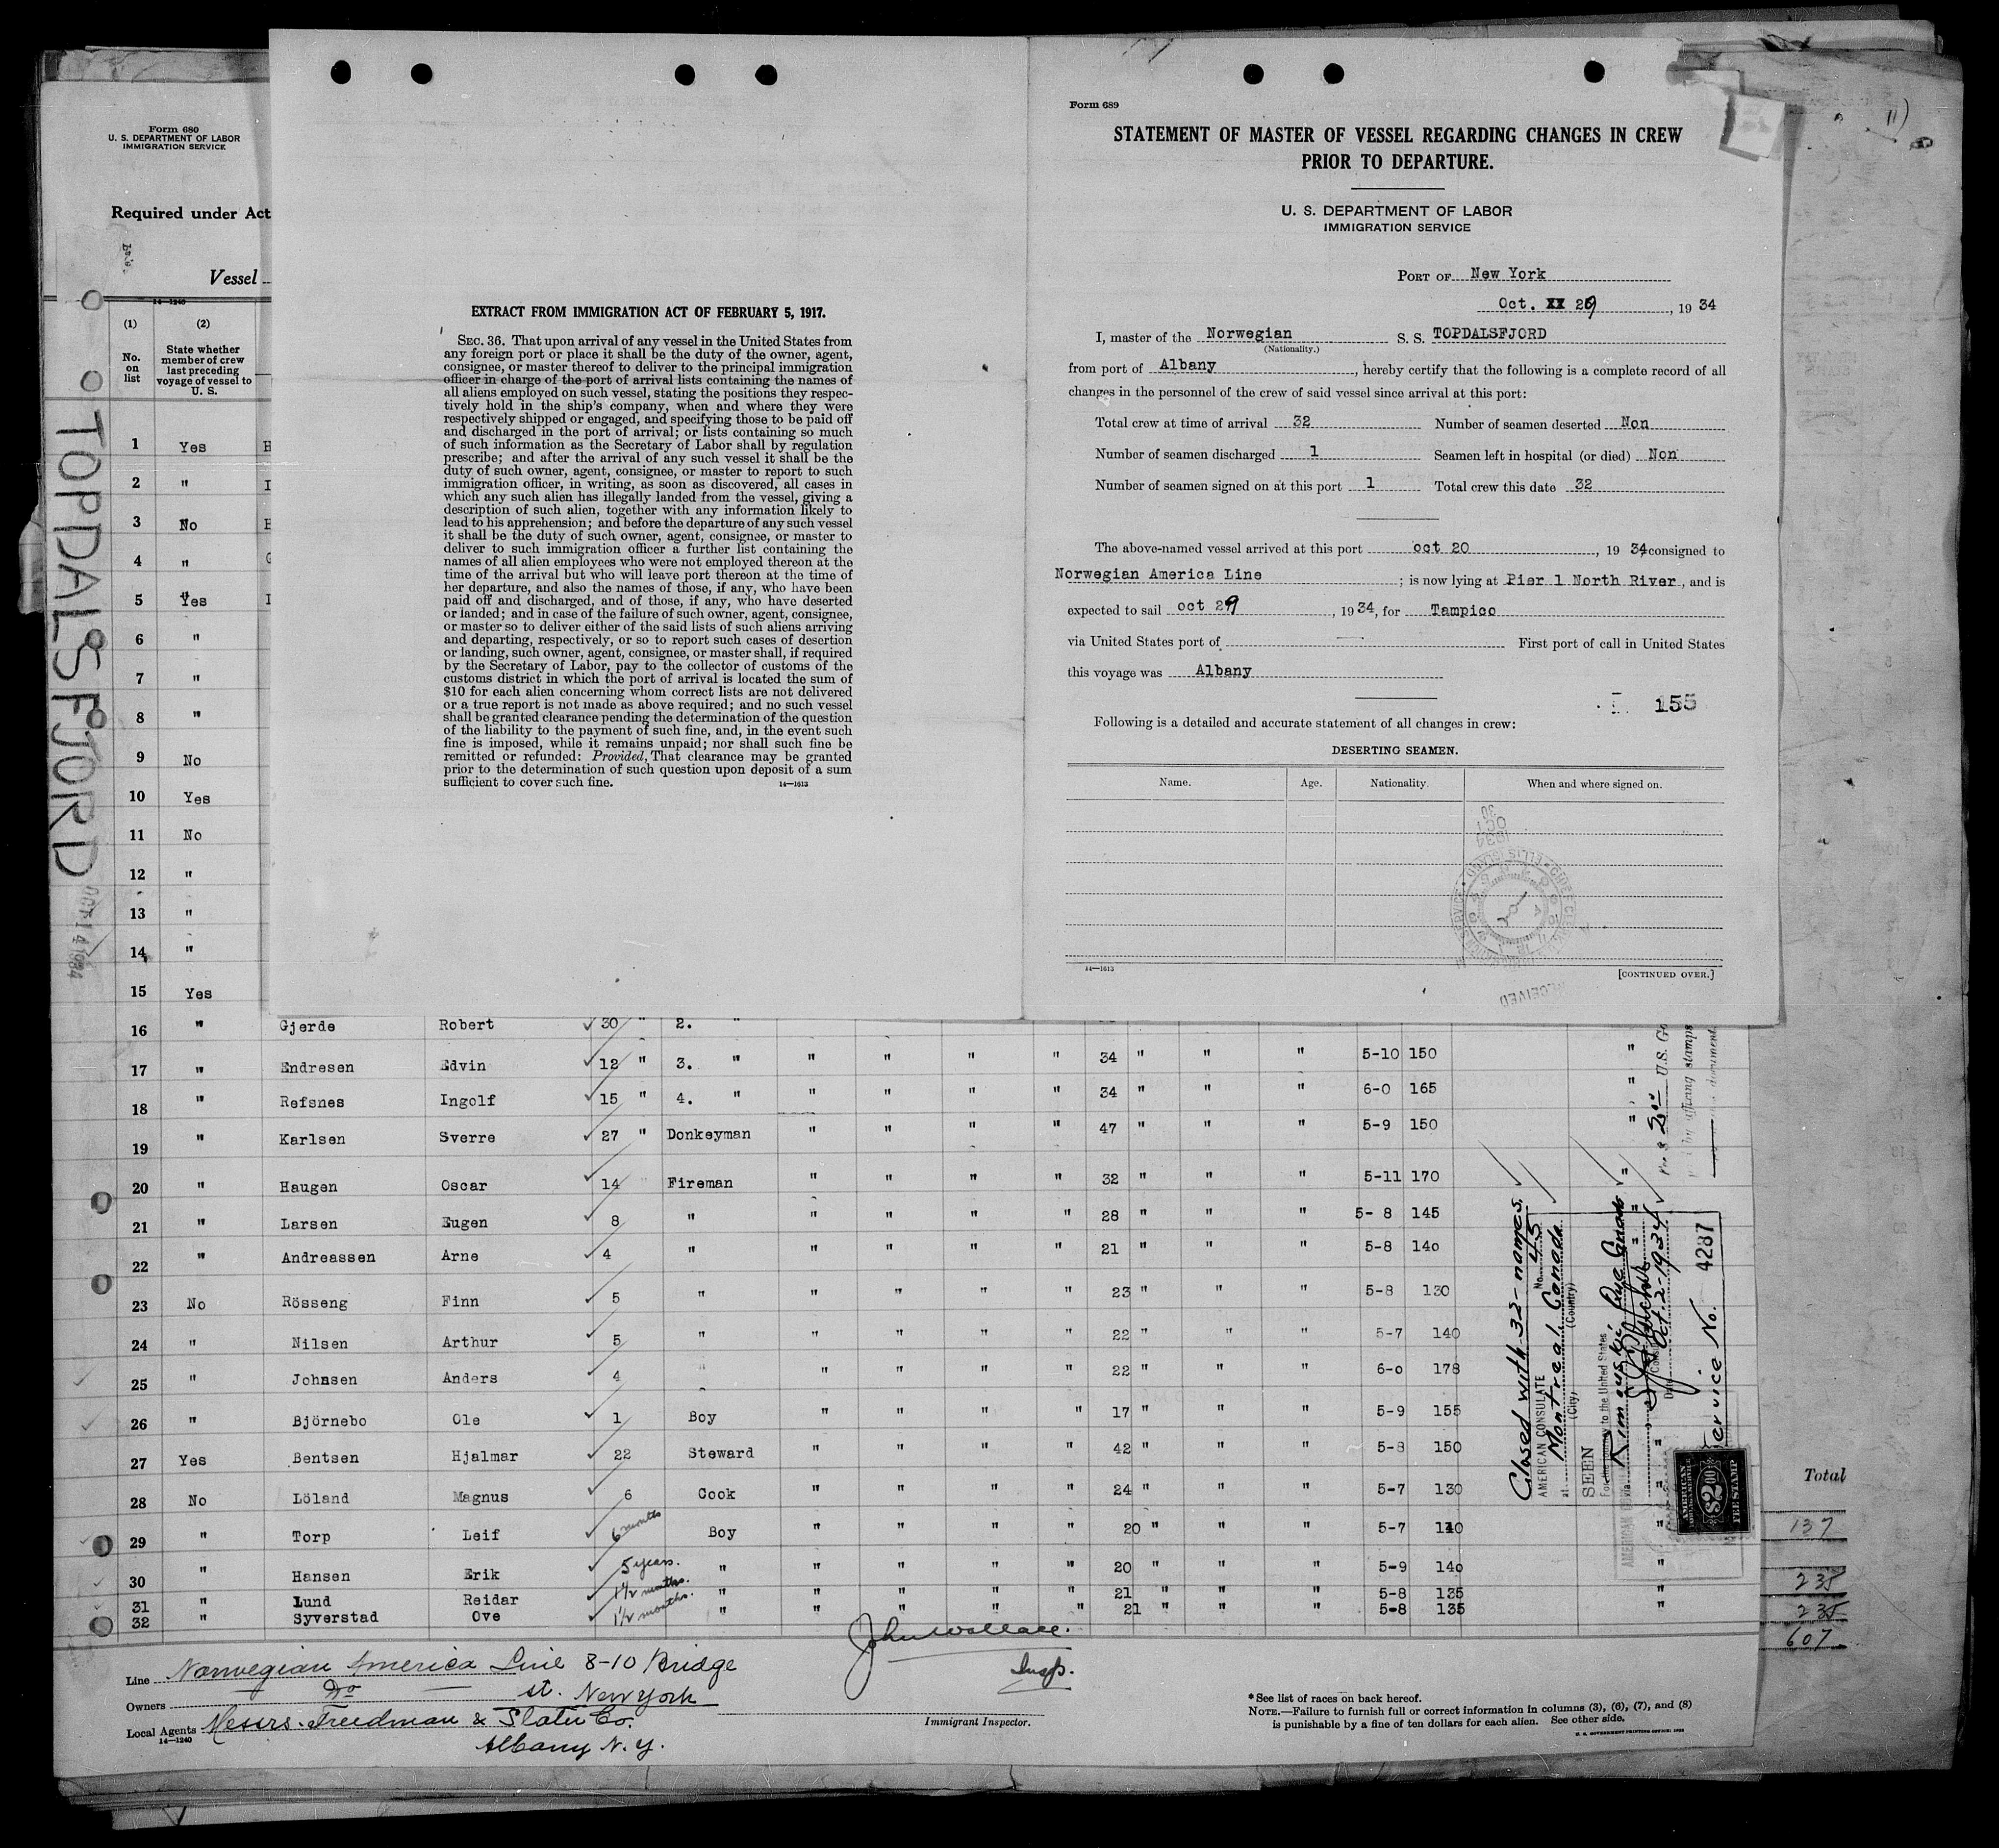 Form 680
U. S. DEPARTMENT OF LABOR
IMMIGRATION SERVICE
Required under Act
Vessel
14—1240
(1) (2)
No. on list
State whether member of crew last preceding voyage of vessel to U. S.
1 Yes H
2 " I
3 No H
4 " G
5 Yes I
6 "
7 "
8 "
9 No
10 Yes
11 No
12 "
13 "
14 "
15 Yes
TOPDALSFJORD
OCT 14 1934
EXTRACT FROM IMMIGRATION ACT OF FEBRUARY 5, 1917.
SEC. 36. That upon arrival of any vessel in the United States from
any foreign port or place it shall be the duty of the owner, agent,
consignee, or master thereof to deliver to the principal immigration
officer in charge of the port of arrival lists containing the names of
all aliens employed on such vessel, stating the positions they respec-
tively hold in the ship's company, when and where they were
respectively shipped or engaged, and specifying those to be paid off
and discharged in the port of arrival; or lists containing so much
of such information as the Secretary of Labor shall by regulation
prescribe; and after the arrival of any such vessel it shall be the
duty of such owner, agent, consignee, or master to report to such
immigration officer, in writing, as soon as discovered, all cases in
which any such alien has illegally landed from the vessel, giving a
description of such alien, together with any information likely to
lead to his apprehension; and before the departure of any such vessel
it shall be the duty of such owner, agent, consignee, or master to
deliver to such immigration officer a further list containing the
names of all alien employees who were not employed thereon at the
time of the arrival but who will leave port thereon at the time of
her departure, and also the names of those, if any, who have been
paid off and discharged, and of those, if any, who have deserted
or landed; and in case of the failure of such owner, agent, consignee,
or master so to deliver either of the said lists of such aliens arriving
and departing, respectively, or so to report such cases of desertion
or landing, such owner, agent, consignee, or master shall, if required
by the Secretary of Labor, pay to the collector of customs of the
customs district in which the port of arrival is located the sum of
$10 for each alien concerning whom correct lists are not delivered
or a true report is not made as above required; and no such vessel
shall be granted clearance pending the determination of the question
of the liability to the payment of such fine, and, in the event such
fine is imposed, while it remains unpaid; nor shall such fine be
remitted or refunded: Provided, That clearance may be granted
prior to the determination of such question upon deposit of a sum
sufficient to cover such fine. 14—1613
Form 689
STATEMENT OF MASTER OF VESSEL REGARDING CHANGES IN CREW
PRIOR TO DEPARTURE.
U. S. DEPARTMENT OF LABOR
IMMIGRATION SERVICE
PORT OF New York
Oct. XX 29, 1934
I, master of the Norwegian S. S. TOPDALSFJORD
(Nationality.)
from port of Albany, hereby certify that the following is a complete record of all
changes in the personnel of the crew of said vessel since arrival at this port:
Total crew at time of arrival 32 Number of seamen deserted Non
Number of seamen discharged 1 Seamen left in hospital (or died) Non
Number of seamen signed on at this port 1 Total crew this date 32
The above-named vessel arrived at this port oct 20, 1934, consigned to
Norwegian America Line; is now lying at Pier 1 North River, and is
expected to sail oct 29, 1934, for Tampico
via United States port of First port of call in United States
this voyage was Albany
155
Following is a detailed and accurate statement of all changes in crew:
DESERTING SEAMEN.
Name. Age. Nationality. When and where signed on.
1934 OCT 30
ELLIS ISLAND
RECEIVED
14—1613 [CONTINUED OVER.]
16 " Gjerde Robert 30 " 2. "
17 " Endresen Edvin 12 " 3. " " " " " 34 " " " 5-10 150 "
18 " Refsnes Ingolf 15 " 4. " " " " " 34 " " " 6-0 165 "
19 " Karlsen Sverre 27 " Donkeyman " " " " 47 " " " 5-9 150 "
20 " Haugen Oscar 14 Fireman " " " " 32 " " " 5-11 170 "
21 " Larsen Eugen 8 " " " " " 28 " " " 5- 8 145 "
22 " Andreassen Arne 4 " " " " " 21 " " " 5-8 140 "
23 No Rösseng Finn 5 " " " " " 23 " " " 5-8 130
24 " Nilsen Arthur 5 " " " " " 22 " " " 5-7 140
25 " Johnsen Anders 4 " " " " " 22 " " " 6-0 178
26 " Björnebo Ole 1 Boy " " " " 17 " " " 5-9 155
27 Yes Bentsen Hjalmar 22 Steward " " " " 42 " " " 5-8 150 "
28 No Löland Magnus 6 Cook " " " " 24 " " " 5-7 130 "
29 " Torp Leif 6 months Boy " " " " 20 " " " 5-7 140 "
30 " Hansen Erik 5 years. " " " " " 20 " " " 5-9 140 "
31 " Lund Reidar 1½ months. " " " " " 21 " " " 5-8 135 "
32 " Syverstad Ove 1½ months. " " " " " 21 " " " 5-8 135 "
Closed with 32 - names.
AMERICAN CONSULATE No. 45
at Montreal, Canada
(City, (Country)
SEEN
For the journey to the United States
via Rimouski, Que Canada
Date Oct. 2 - 1934
Service No. 4287
AMERICAN FOREIGN SERVICE
$2.00
FEE STAMP
Total
137
235
235
607
Line Norwegian America Line 8-10 Bridge
Owners Do st. New York
Local Agents Messrs. Freedman & Slater Co.
14—1240
Albany N. Y.
John Wallace.
Insp.
Immigrant Inspector.
*See list of races on back hereof.
NOTE.—Failure to furnish full or correct information in columns (3), (6), (7), and (8)
is punishable by a fine of ten dollars for each alien. See other side.
U. S. GOVERNMENT PRINTING OFFICE